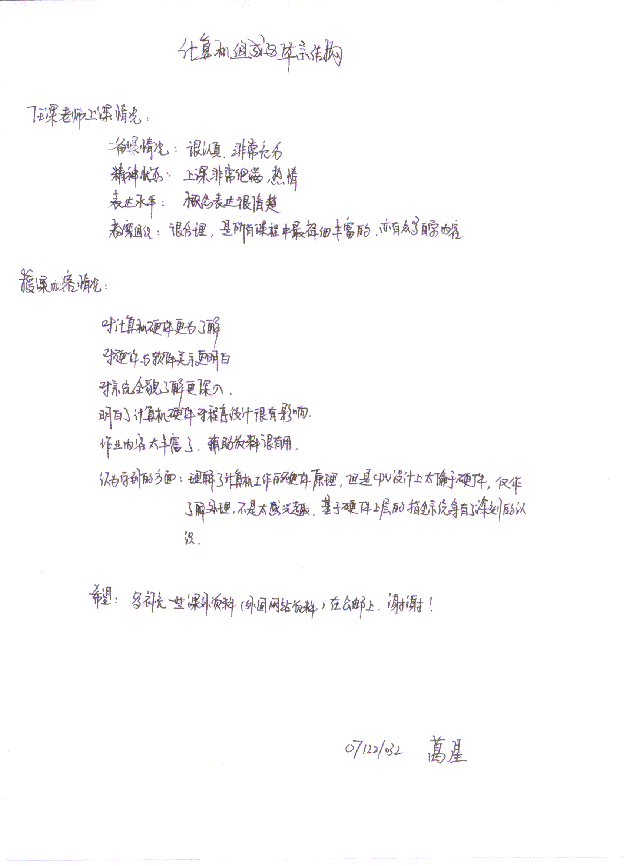 计算机组成与体系结构
任课老师上课情况：
备课情况：很认真、非常充分
精神状态：上课非常饱满、热情
表达水平：概念表达很清楚
教案组织：很合理，是所有课程中最详细丰富的，亦有众多自学内容
授课内容情况：
对计算机硬件更为了解
对硬件与软件关系更明白
对系统全貌了解更深入.
明白了计算机硬件对程序设计很有影响.
作业内容太丰富了，辅助资料很有用.
认为学到的方面：理解了计算机工作的硬件原理，但是CPU设计上太偏于硬件，仅作
了解处理，不是太感兴趣. 基于硬件上层的指令系统等有了深刻的认
识.
希望：多补充一些课外资料（外国网站资料）在公邮上. 谢谢！
07122032 葛星